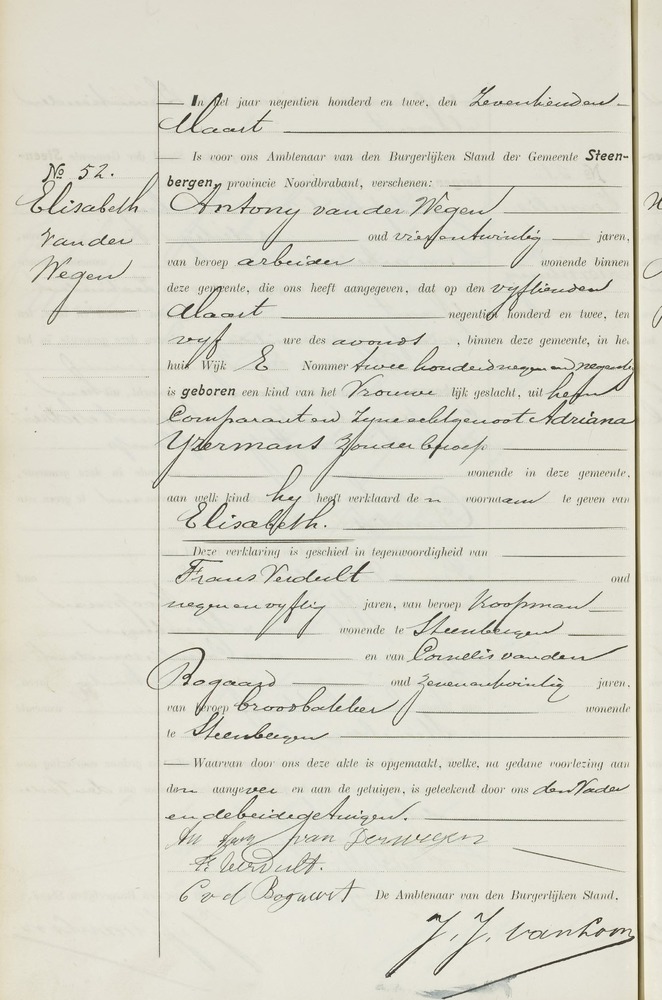 In het jaar negentien honderd en twee, den Zeventienden
Maart
Is voor ons Ambtenaar van den Burgerlijken Stand der Gemeente Steen-
bergen, provincie Noordbrabant, verschenen:
No 52.
Elisabeth
van der
Wegen
Antony van der Wegen
oud vier en twintig jaren,
van beroep arbeider wonende binnen
deze gemeente, die ons heeft aangegeven, dat op den vyftienden
Maart negentien honderd en twee, ten
vyf ure des avonds, binnen deze gemeente, in het
huis Wijk E Nommer twee honderd negen en negentig
is geboren een kind van het Vrouwelijk geslacht, uit hem
Comparant en zyne echtgenoot Adriana
Yzermans zonder beroep
wonende in deze gemeente,
aan welk kind hy heeft verklaard den voornaam te geven van
Elisabeth.
Deze verklaring is geschied in tegenwoordigheid van
Frans Verdult oud
negen en vyftig jaren, van beroep Koopman
wonende te Steenbergen
en van Cornelis van den
Bogaard oud zeven en twintig jaren,
van beroep broodbakker wonende
te Steenbergen
Waarvan door ons deze akte is opgemaakt, welke, na gedane voorlezing aan
den aangever en aan de getuigen, is geteekend door ons den Vader
en de beide getuigen.
van der wegen
F. Verdult.
C v d Bogaert De Ambtenaar van den Burgerlijken Stand,
J. J. van Loon